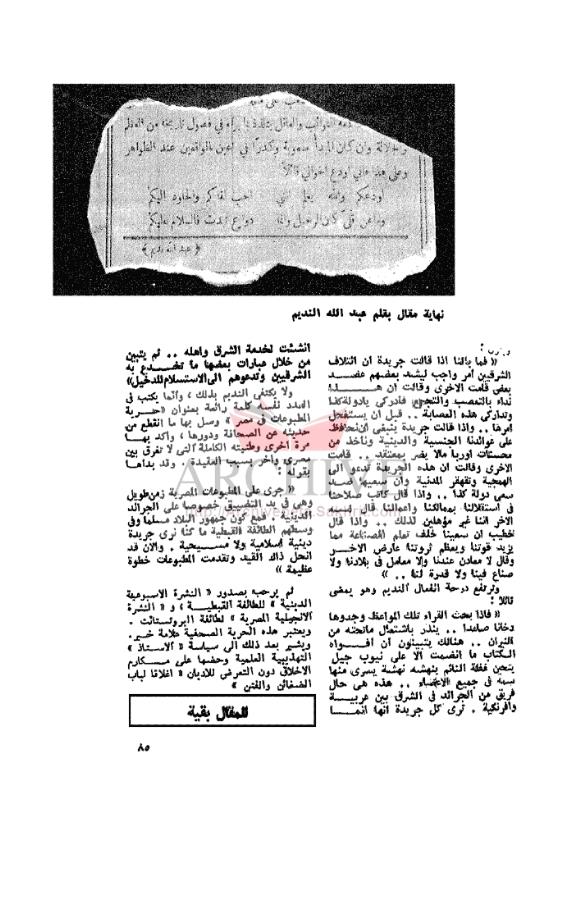 العواقب والعاقل يتلذذ بايراده في فصول تاريخه من العظم
والجلالة وان كان المبدأ صعوبة وكدرا في أعين الواقفين عند الظواهر
وعلى هذا فاني اودع اخواني قائلاً
اودعكم والله يعلم انني احب لقاكم والخلود اليكم
وما عن قلى كان الرحيل وانما دواع تبدت فالسلام عليكم
﴿ عبد الله نديم ﴾
نهاية مقال بقلم عبد الله النديم
« فما بالنا اذا قالت جريدة ان ائتلاف
الشرقيين أمر واجب ليشد بعضهم عضد
بعض قامت الاخرى وقالت ان هذا
نداء بالتعصب والتجمع فادركي يادولة كذا
وتداركي هذه العصابة .. قبل أن يستفحل
أمرها .. واذا قالت جريدة ينبغي أن نحافظ
على عوائدنا الجنسية والدينية ونأخذ من
محسنات أوربا مالا يضر بمعتقد .. قامت
الاخرى وقالت ان هذه الجريدة تدعو الى
الهمجية وتقهقر المدنية وأن سعيها ضد
سعى دولة كذا .. واذا قال كاتب صلاحنا
في استقلالنا بممالكنا واعمالنا قال ضده
الاخر اننا غير مؤهلين لذلك .. واذا قال
خطيب ان سعينا خلف تعلم الصناعة مما
يزيد قوتنا ويعظم ثروتنا عارض الآخر
وقال لا معادن عندنا ولا معامل في بلادنا ولا
صناع فينا ولا قدرة لنا .. »
وترتفع درجة انفعال النديم وهو يمضى
قائلا :
« فاذا بحث القراء تلك المواعظ وجدوها
دخانا صاعدا .. ينذر باشتعال ماتحته من
النيران .. هنالك يتبينون أن أفواه
الكتاب ما انضمت الا على نيوب جيل
يتحين غفلة النائم ينهشه نهشة يسرى منها
سمه في جميع الأعضاء .. هذه هي حال
فريق من الجرائد في الشرق بين عربية
وأفرنكية . ترى كل جريدة أنها انما
أنشئت لخدمة الشرق وأهله .. ثم يتبين
من خلال عبارات بعضها ما تخدع به
الشرقيين وتدعوهم الى الاستسلام للدخيل»
ولا يكتفى النديم بذلك ، وانما يكتب في
العدد نفسه كلمة رائعة بعنوان « حرية
المطبوعات في مصر » وصل بها ما انقطع من
حديثه عن الصحافة ودورها ، وأكد بها
مرة أخرى وطنيته الكاملة التي لا تفرق بين
مصرى وآخر بسبب العقيدة . وقد بدأها
بقوله :
« جرى على المطبوعات المصرية زمن طويل
وهى في يد التضييق خصوصا على الجرائد
الدينية . فمع كون جمهور البلاد مسلما وفى
وسطهم الطائفة القبطية ما كنا نرى جريدة
دينية اسلامية ولا مسيحية . والآن قد
انحل ذاك القيد وتقدمت المطبوعات خطوة
عظيمة »
ثم يرحب بصدور « النشرة الاسبوعية
الدينية » للطائفة القبطية ، و « النشرة
الانجيلية المصرية » لطائفة البروتستانت .
ويعتبر هذه الحرية الصحفية علامة خير .
ويشير بعد ذلك الى سياسة « الاستاذ »
التهذيبية العلمية وحضها على مكارم
الاخلاق دون التعرض للاديان « اغلاقا لباب
الضغائن والفتن »
للمقال بقية
٨٥
ARCHIVE